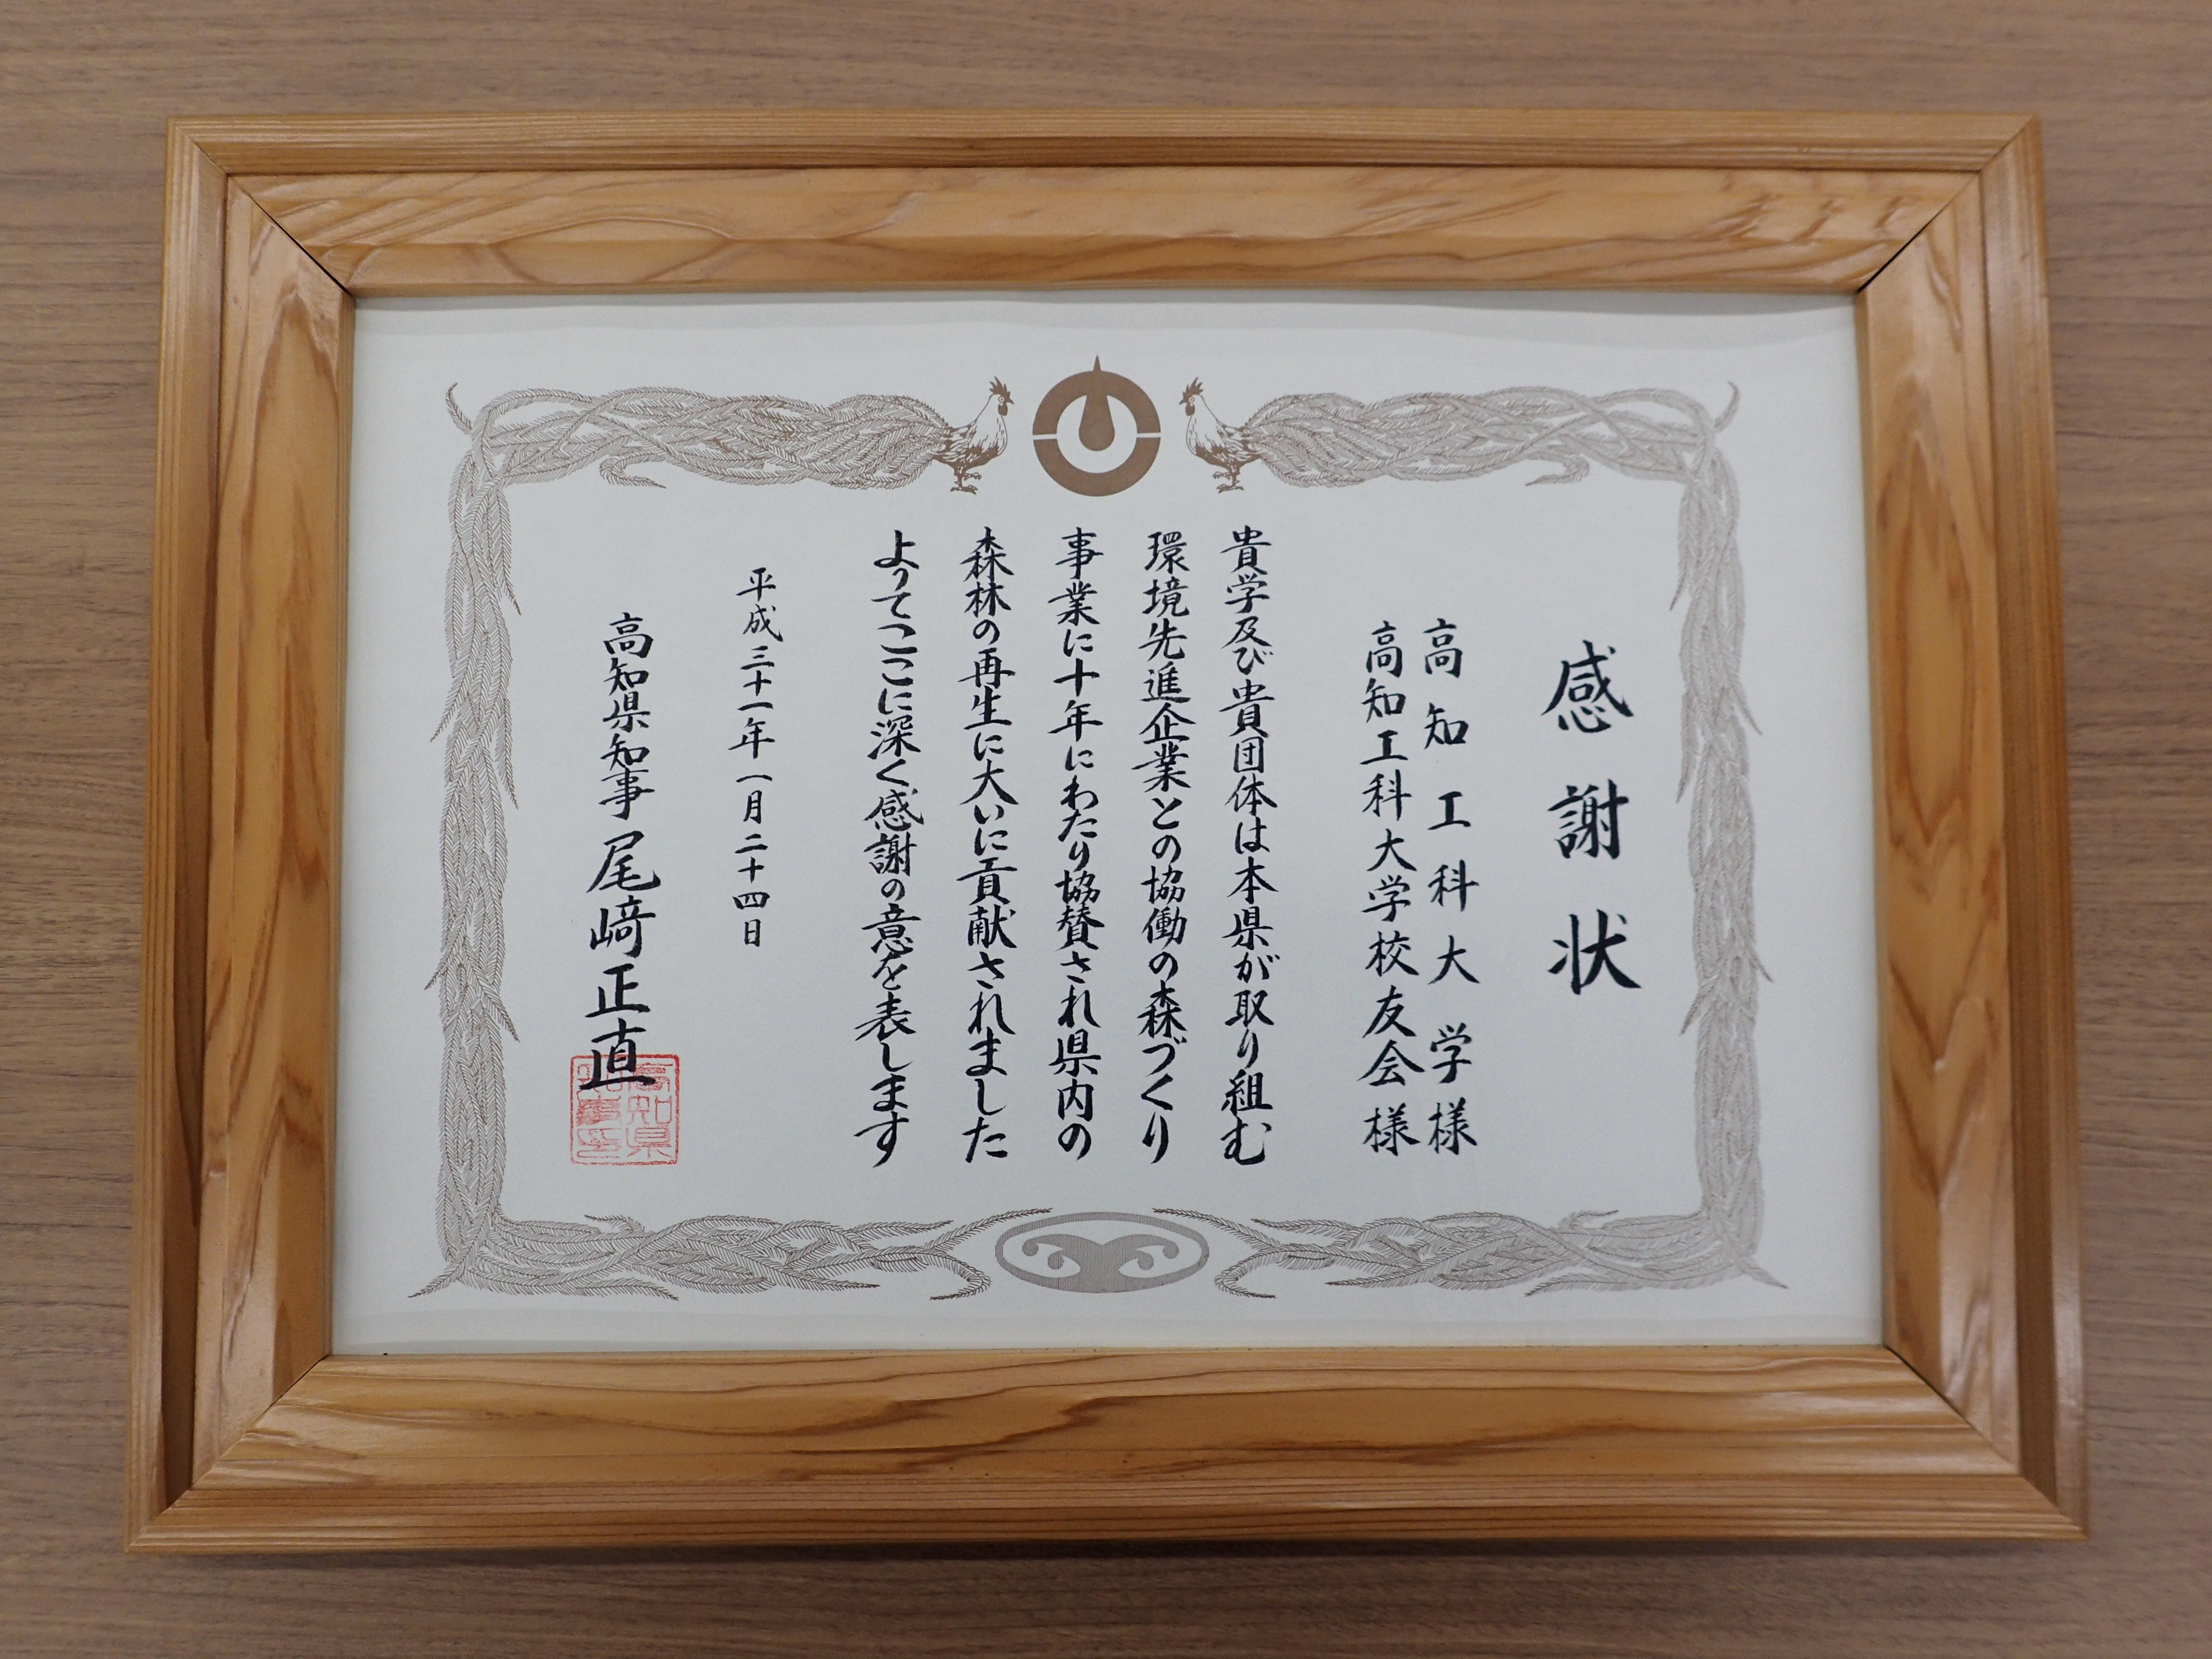 感謝状
高知工科大学様
高知工科大学校友会様
貴学及び貴団体は本県が取り組む
環境先進企業との協働の森づくり
事業に十年にわたり協賛され県内の
森林の再生に大いに貢献されました
よってここに深く感謝の意を表します
平成三十一年一月二十四日
高知県知事 尾﨑正直
高知県
知事印